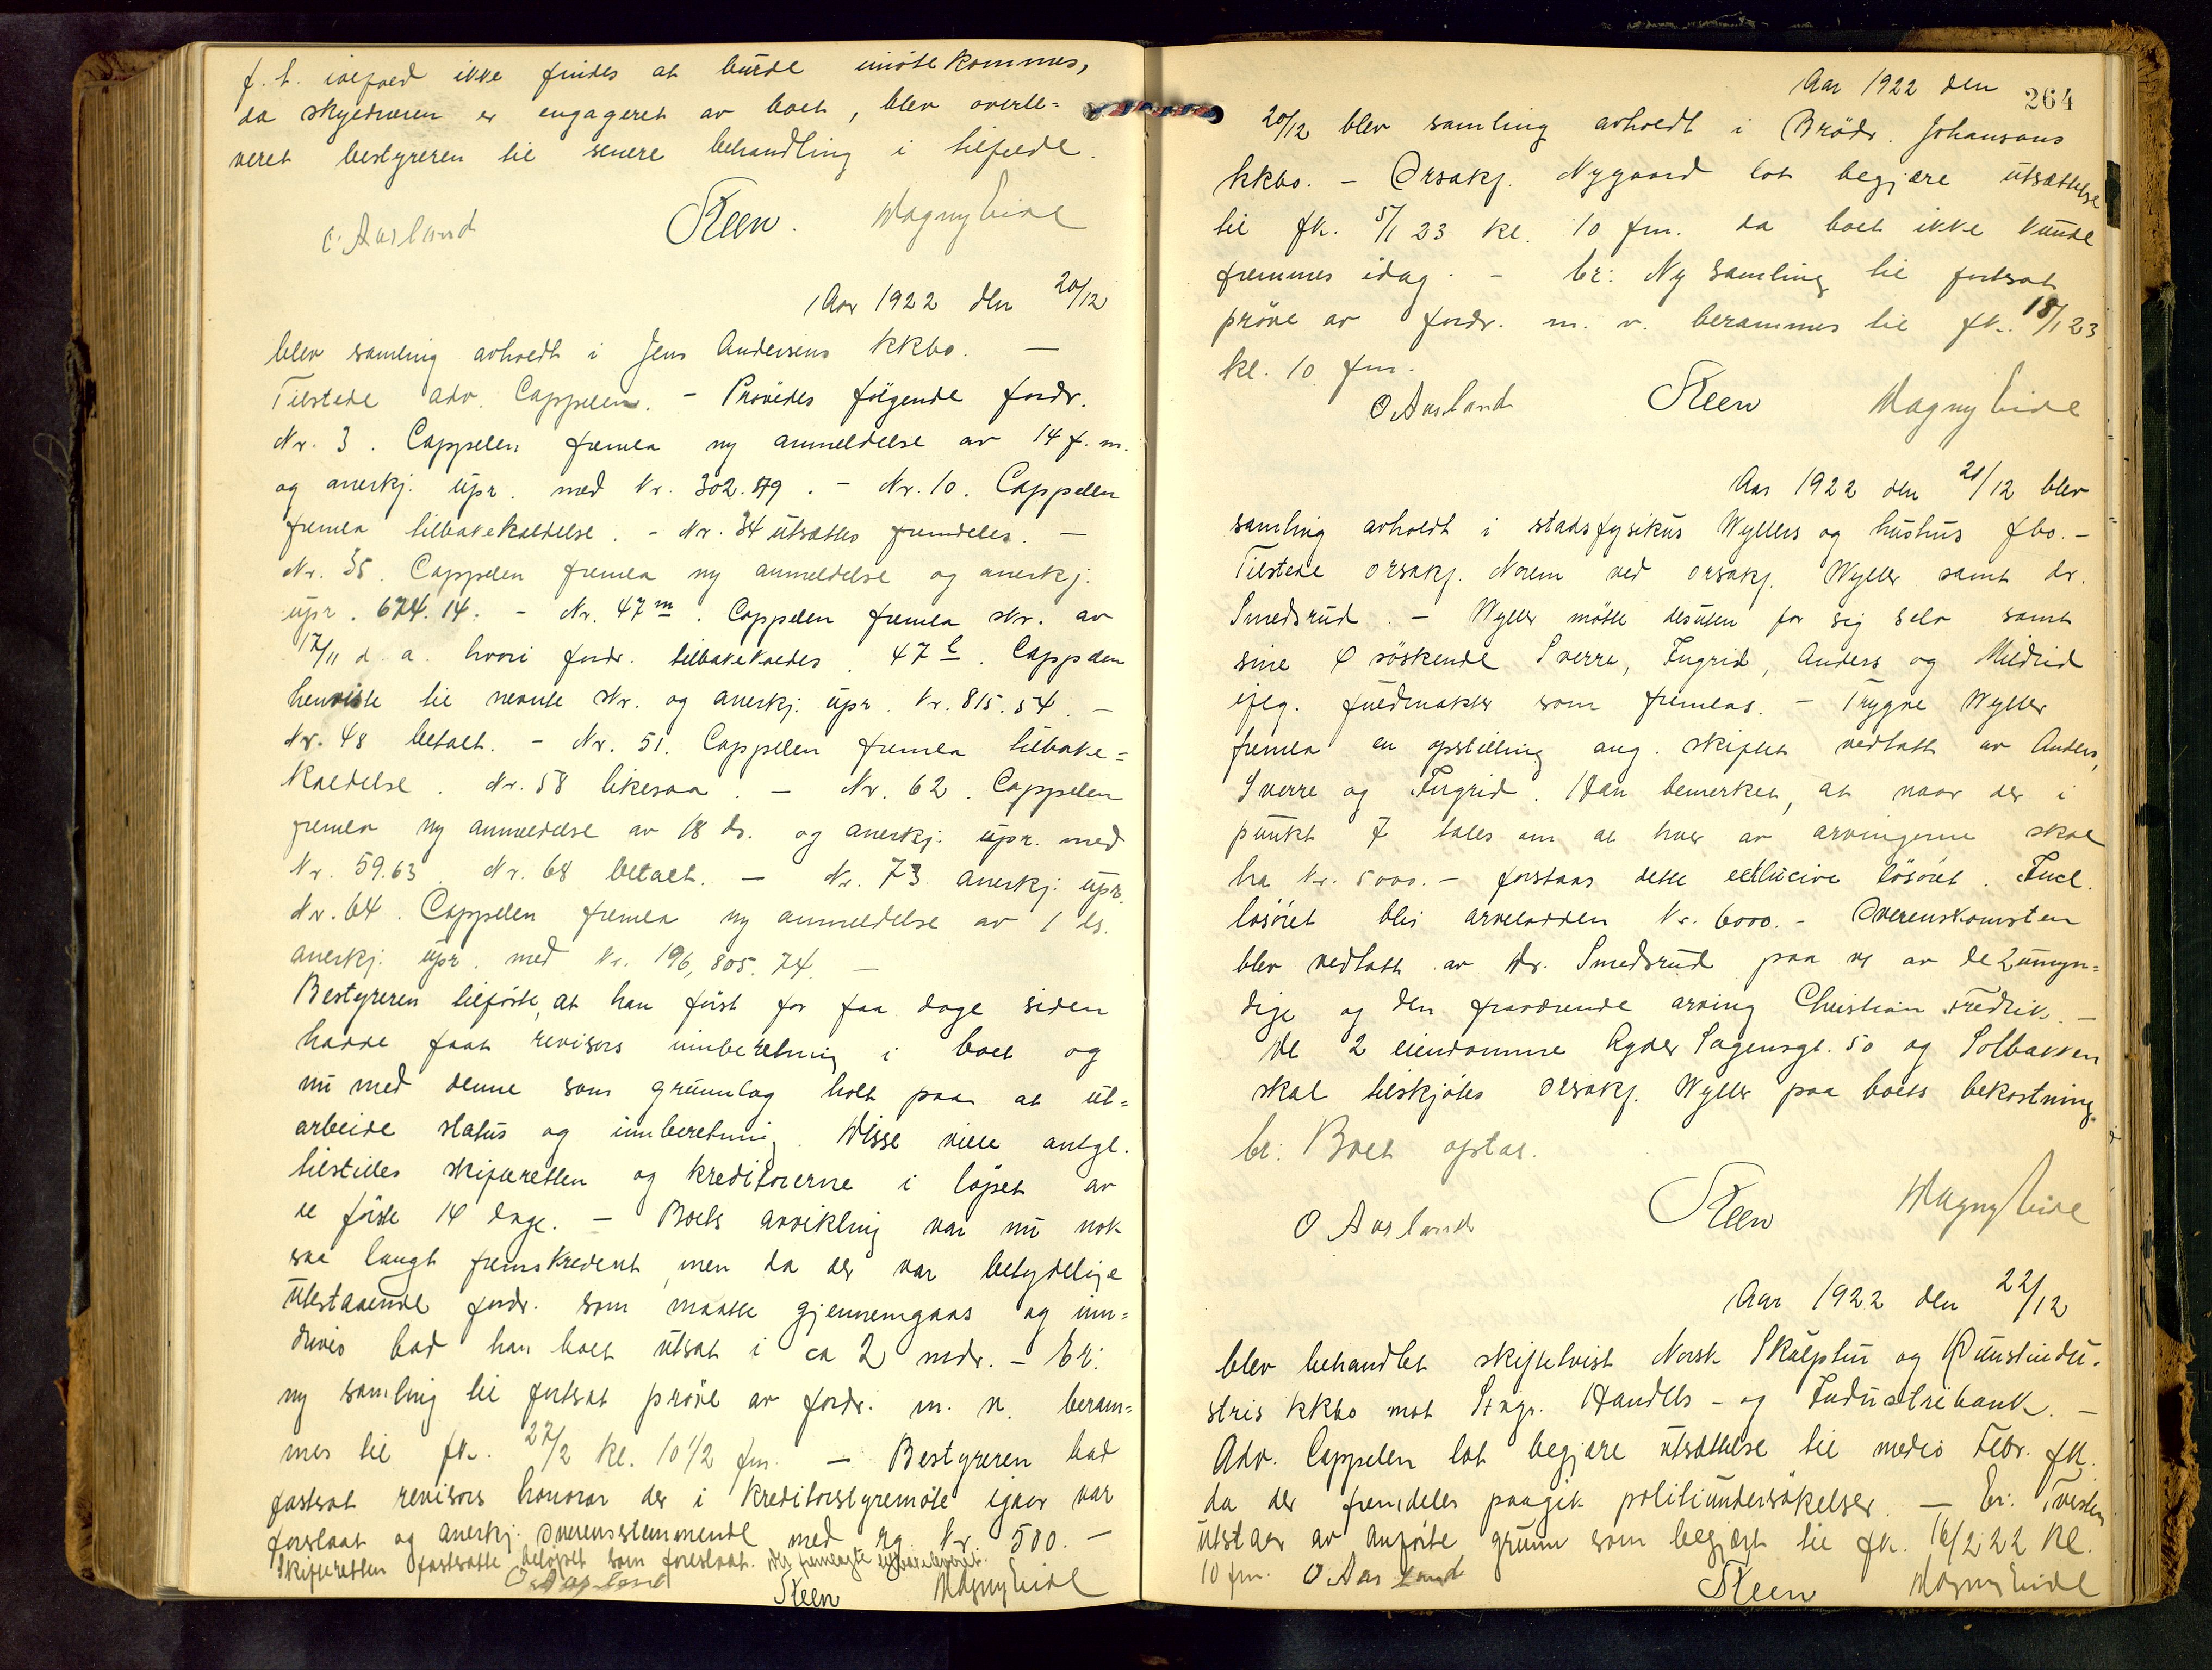 f. t. ialfald ikke findes at burde imötekommes,
da skyldneren er engageret av boet, blev overle=
veret bestyreren til senere behandling i tilfælde.
O. Aarland Steen. Magny Eide
Aar 1922 den 20/12
blev samling avholdt i Jens Andersens kkbo. —
Tilstede adv. Cappelen. - Prövedes følgende fordr.
Nr. 3. Cappelen fremla ny anmeldelse av 14 f. m.
og anerkj. upr. med kr. 302.89. - Nr. 10. Cappelen
fremla tilbakekaldelse. - Nr. 34 utsattes fremdeles. —
Nr. 35. Cappelen fremla ny anmeldelse og anerkj.
upr. 674.14. - Nr. 47 m. Cappelen fremla skr. av
17/11 d. a. hvori fordr. tilbakekaldes. 47 l. Cappelen
henviste til nevnte skr. og anerkj. upr. kr. 815.54. —
Nr. 48 betalt. - Nr. 51. Cappelen fremla tilbake=
kaldelse. Nr. 58 likesaa. - Nr. 62. Cappelen
fremla ny anmeldelse av 18 ds. og anerkj. upr. med
kr. 59.63. Nr. 68 betalt. — Nr. 73 anerkj. upr.
Nr. 64. Cappelen fremla ny anmeldelse av 1 ds.
anerkj. upr. med kr. 196,805.74. —
Bestyreren tilförte, at han först for faa dage siden
hadde faat revisors innberetning i boet og
nu med denne som grunnlag holt paa at ut=
arbeide status og innberetning. Disse ville antgl.
tilstilles skifteretten og kreditorerne i löpet av
de förste 14 dage. — Boets avvikling var nu nok
saa langt fremskredent, men da der var betydelige
utestaaende fordr. som maatte gjennemgaas og inn=
drives bad han boet utsat i ca 2 mdr. - Er:
ny samling til fortsat pröve av fordr. m. v. beram=
mes til fk. 27/2 kl. 10 1/2 fm. — Bestyreren bad
fastsat revisors honorar der i kreditorstyremöte igaar var
foreslaat og anerkj. overensstemmende med rg. kr. 500. —
Skifteretten fastsatte belöpet som foreslaat. Det fremlagte tilbakeleveret.
O. Aarland Steen Magny Eide
264
Aar 1922 den
20/12 blev samling avholdt i Brödr. Johansons
kkbo. - Orsakf. Nygaard lot begjære utsættelse
til fk. 5/1 23 kl. 10 fm. da boet ikke kunde
fremmes idag. - Er: Ny samling til fortsat
pröve av fordr. m. v. berammes til fk. 18/1 23
kl. 10 fm.
O. Aarland Steen Magny Eide
Aar 1922 den 21/12 blev
samling avholdt i stadsfysikus Wyllers og hustrus fbo. -
Tilstede orsakf. Norem ved orsakf. Wyller samt dr.
Smedsrud. - Wyller mötte desuten for sig selv samt
sine 4 söskende Sverre, Ingrid, Anders og Mildrid
iflg. fuldmakter som fremlas. - Trygve Wyller
fremla en opstilling ang. skiftet vedtatt av Anders,
Sverre og Ingrid. Han bemerket, at naar der i
punkt 7 tales om at hver av arvingerne skal
ha kr. 5000.- forstaas dette exclucive lösöret. Incl.
lösöret blir arvelodden kr. 6000.- Overenskomsten
blev vedtatt av dr. Smedsrud paa v. av de 2 umyn=
dige og den fraværende arving Christian Fredrik. —
De 2 eiendomme Ryder Sagensgt. 50 og Solbakken
skal tilskjötes orsakf. Wyller paa boets bekostning.
Er: Boet optas.
O. Aarland Steen Magny Eide
Aar 1922 den 22/12
blev behandlet skiftetvist Norsk Skulptur og Kunstindu=
stris kkbo mot Stvgr. Handels- og Industribank. —
Adv. Cappelen lot begjære utsættelse til medio Febr. fk.
da der fremdeles paagik politiundersökelser. — Er: Tvisten
utstaar av anförte grunn som begjært til fk. 16/2 22 kl.
10 fm. O. Aarland
Steen Magny Eide